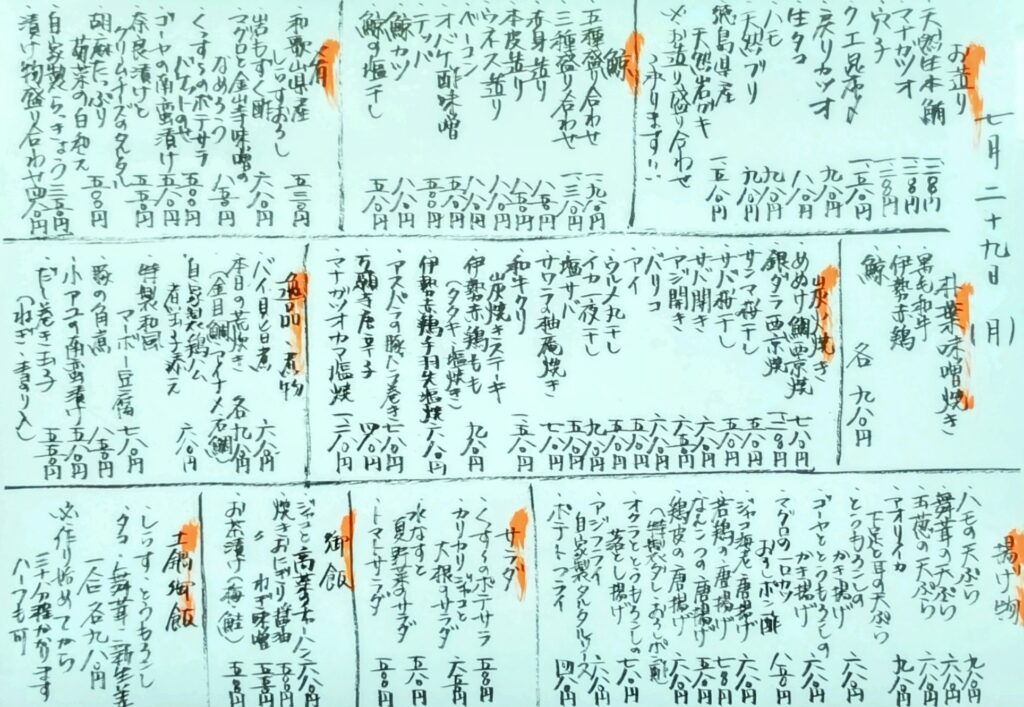 七月二十九日(月)
お造り
・天然生本鮪 一二八〇円
・マナガツオ 一二八〇円
・穴子 一二八〇円
・クエ昆布〆 一五八〇円
・戻りカツオ 九八〇円
・生タコ 八八〇円
・ハモ 九八〇円
・天然ブリ 九八〇円
・徳島県産
天然岩ガキ 一五八〇円
※お造り盛り合わせ
承ります!!
鯨
・五種盛り合わせ 一九八〇円
・三種盛り合わせ 一三八〇円
・赤身造り 八八〇円
・本皮造り 八五〇円
・ウネス造り 八八〇円
・ベーコン 八八〇円
・オバケ酢味噌 五八〇円
・テッパ 五八〇円
・鯨カツ 八八〇円
・鯨の塩干し 五八〇円
肴
・和歌山県産
しらすおろし 五二〇円
・岩もずく酢 六八〇円
・マグロと金山寺味噌の
なめろう 八五〇円
・くずまのポテサラ
バゲットのせ 五八〇円
・ゴーヤの南蛮漬け 五八〇円
・奈良漬けと
クリームチーズのタルタル 五八〇円
・胡麻たっぷり
菊菜の白和え 五八〇円
・自家製らっきょう 三五〇円
・漬け物盛り合わせ 四八〇円
朴葉味噌焼き
・黒毛和牛
・伊勢赤鶏
・鯨
各 九八〇円
炭火焼き
・めぬけ鯛西京焼 七八〇円
・銀ダラ西京焼 一二八〇円
・サンマ桜干し 五八〇円
・サバ桜干し 五八〇円
・サバ開き 五八〇円
・アジ開き 六八〇円
・バリコ 六五〇円
・アイ 五八〇円
・ウルメ丸干し 五八〇円
・イカ一夜干し 九八〇円
・塩サバ 五五〇円
・サワラの柚庵焼き 七八〇円
・和牛クリ
炭焼きステーキ 一五八〇円
・伊勢赤鶏もも
(タタキ・塩焼き) 九八〇円
・伊勢赤鶏手羽先塩焼 六八〇円
・アスパラの豚バラ巻き 七八〇円
・万願寺唐辛子 四八〇円
・マナガツオカマ塩焼 一二八〇円
逸品・煮物
・バイ貝旨煮 六八〇円
・本日の荒炊き 各九八〇円
(金目鯛・アイナメ・石鯛)
・自家製鶏ハム
煮玉子添え 六八〇円
・特製和風
マーボー豆腐 七八〇円
・豚の角煮 八五〇円
・小アユの南蛮漬け 五八〇円
・だし巻き玉子 五五〇円
(ねぎ・青のり入し)
揚げ物
・ハモの天ぷら 九八〇円
・舞茸の天ぷら 六八〇円
・五穂の天ぷら 六八〇円
・アオリイカ
下足と耳の天ぷら 九八〇円
・とうもろこしの
かき揚げ 六八〇円
・ゴーヤととうもろこしの
かき揚げ 六八〇円
・マグロの一口カツ
おろしポン酢 八五〇円
・ジャコ海老唐揚げ 六八〇円
・若鶏の唐揚げ 七八〇円
・なんこつの唐揚げ 五八〇円
・鶏皮の唐揚げ 六八〇円
(特製ベタダレ・おろしポン酢)
・オクラととうもろこしの
落とし揚げ 七八〇円
・アジフライ
自家製タルタルソース 六八〇円
・ポテトフライ 四八〇円
サラダ
・くずまのポテサラ 五八〇円
・カリカリジャコと
大根のサラダ 六五〇円
・水なすと
夏野菜のサラダ 六八〇円
・トマトサラダ 五八〇円
御飯
・ジャコと高菜チャーハン 六八〇円
・焼きおにぎり 醤油 五〇〇円
・〃 ねぎ味噌 五五〇円
・お茶漬け(梅・鮭) 五五〇円
土鍋御飯
・しらす・とうもろこし
・タコ・舞茸・新生姜
一合 各九八〇円
※作り始めてから
三十分程かかります
ハーフも可